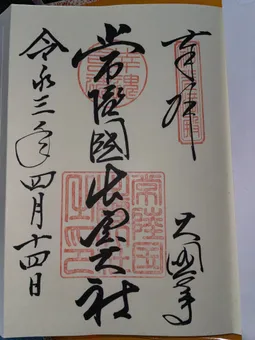 奉拝
大國
常陸國出雲大社
令和三年四月十四日
常陸国